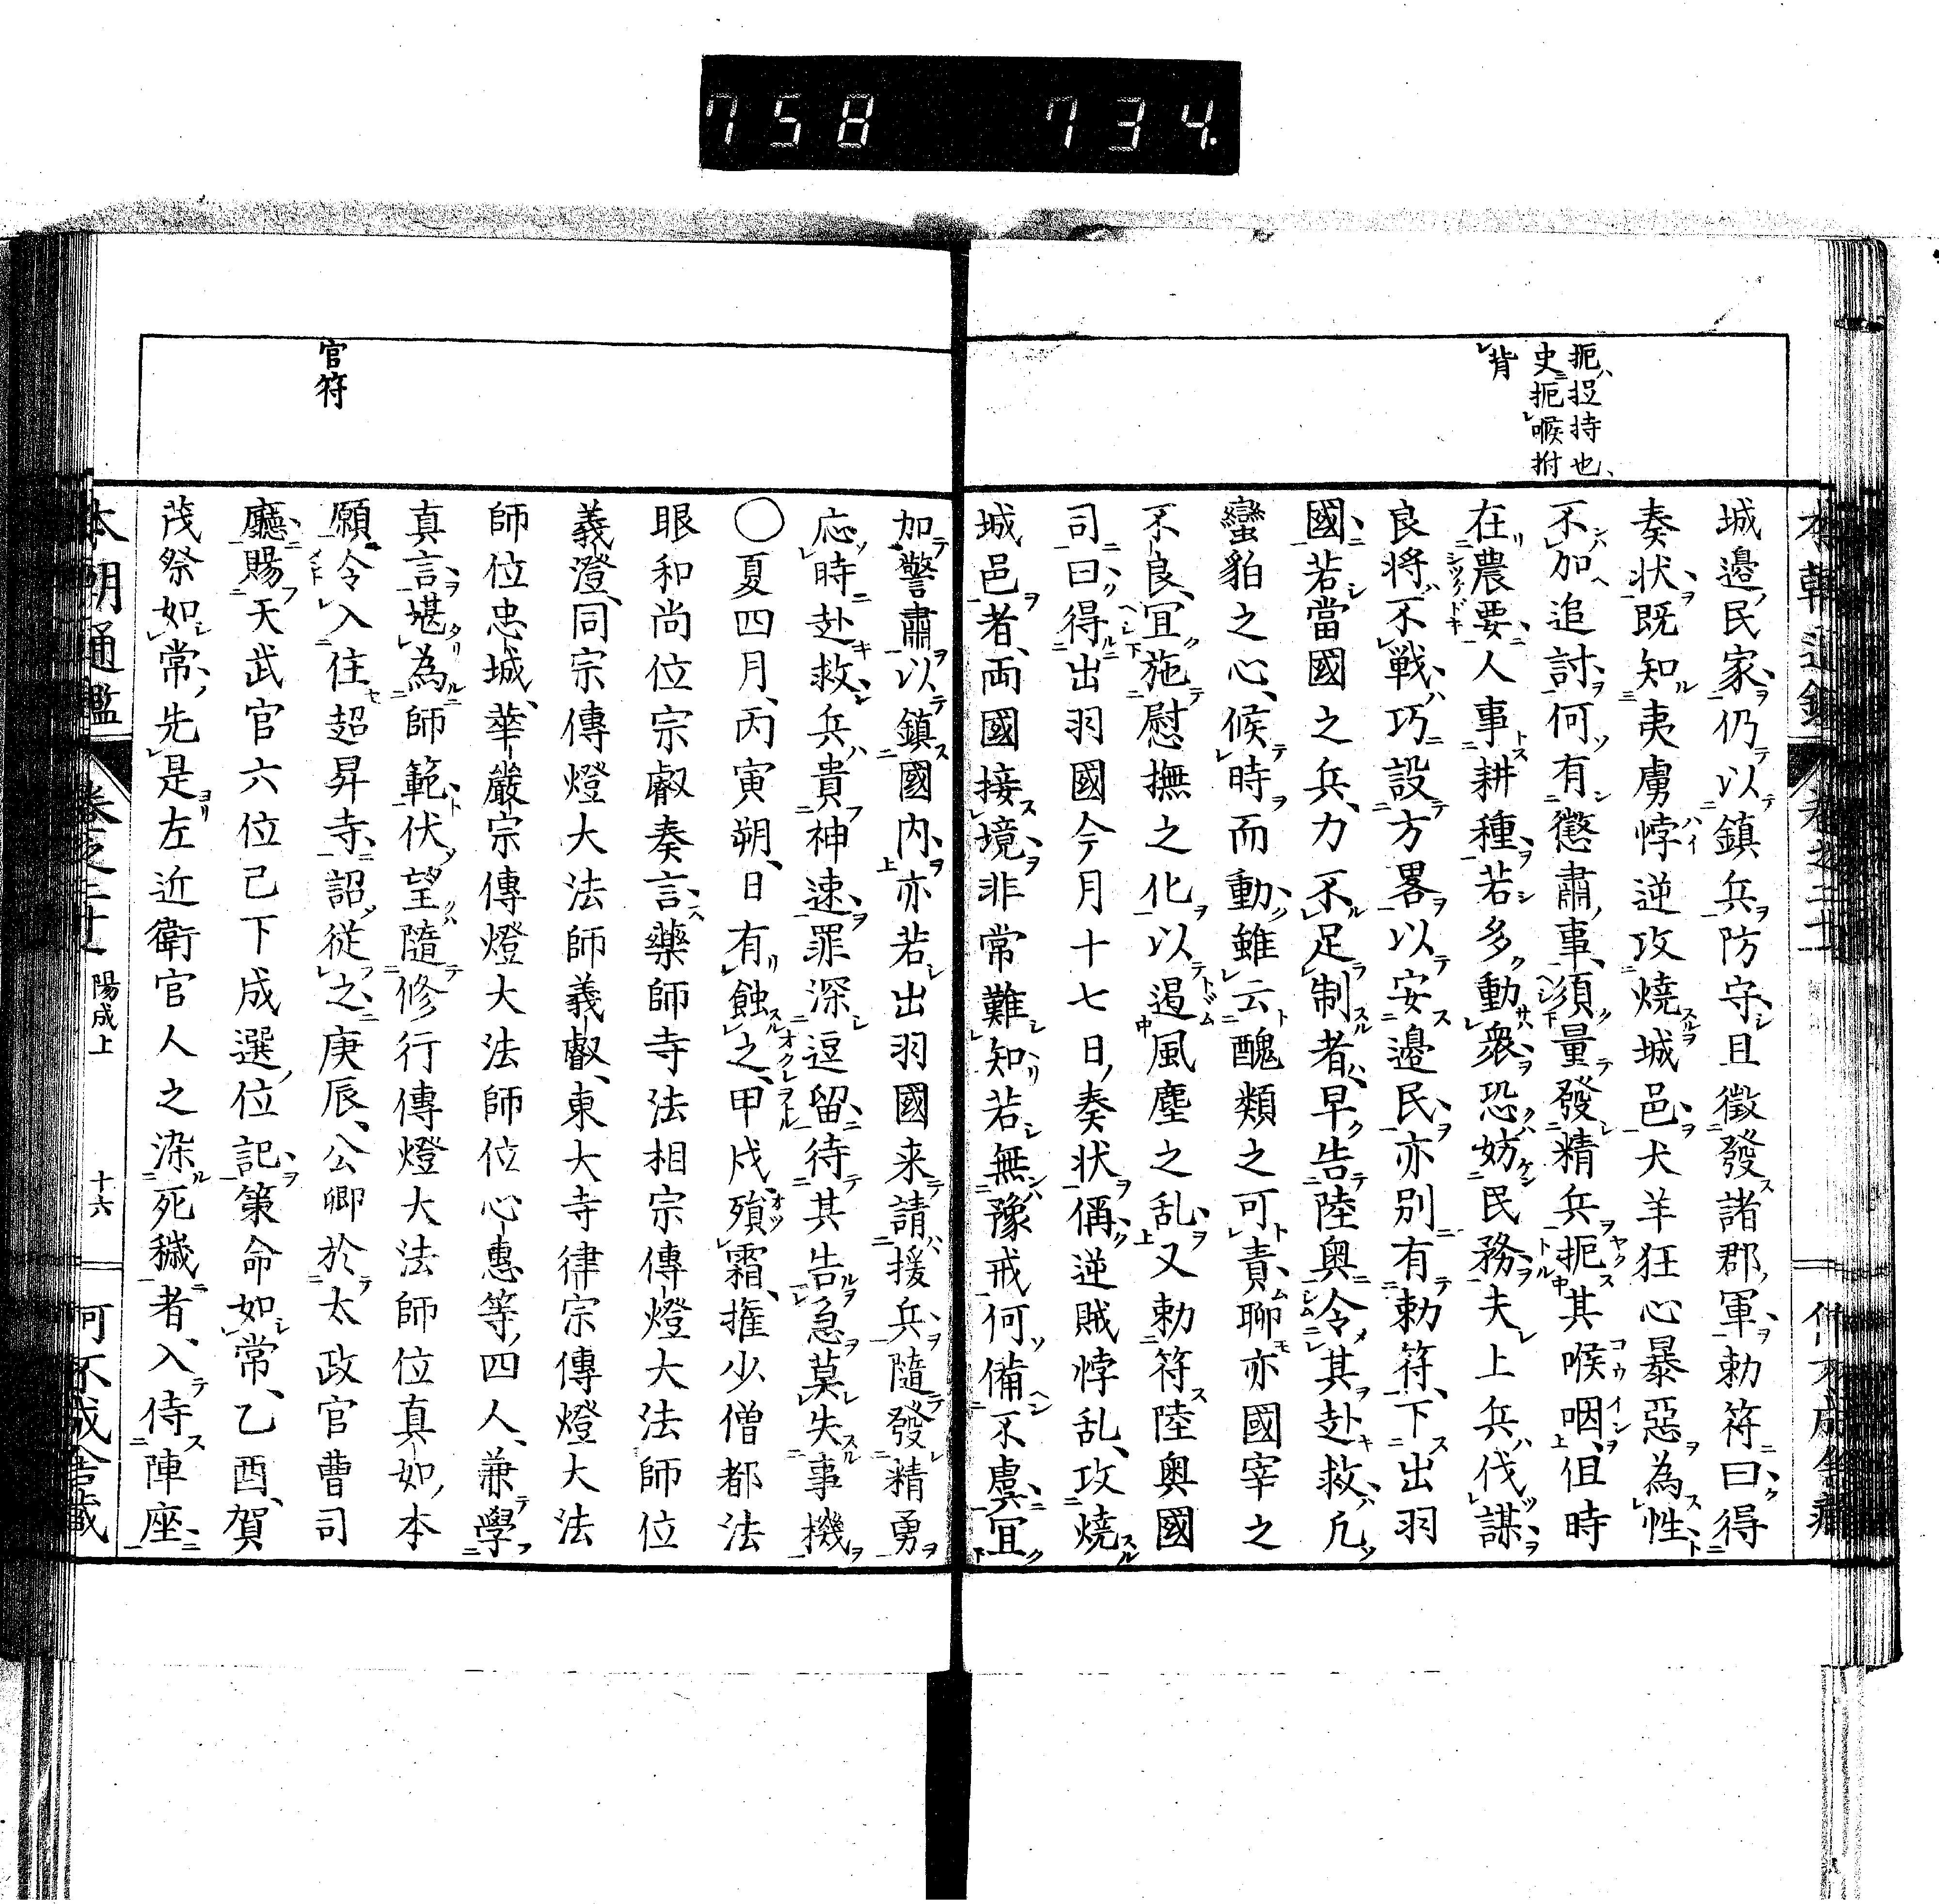 758 734.
扼ハ捉持也、
史扼喉拊
背
城邊民家仍以鎮兵防守且徵發諸郡軍勅符曰得
奏狀既知夷虜悖逆攻燒城邑犬羊狂心暴惡為性
不加追討何有懲肅事須量發精兵扼其喉咽但時
在農要人事耕種若多動衆恐妨民務夫上兵伐謀
良將不戰巧設方畧以安邊民亦別有勅符下出羽
國若當國之兵力不足制者早告陸奥令其赴救凢
蠻貊之心候時而動雖云醜類之可責聊亦國宰之
不良宜施慰撫之化以遏風塵之乱又勅符陸奥國
司曰得出羽國今月十七日奏狀偁逆賊悖乱攻燒
城邑者両國接境非常難知若無豫戒何備不虞宜
加警肅以鎮國内亦若出羽國来請援兵隨發精勇
応時赴救兵貴神速罪深逗留待其告急莫失事機
○夏四月丙寅朔日有蝕之甲戌殞霜権少僧都法
眼和尚位宗叡奏言藥師寺法相宗傳燈大法師位
義澄同宗傳燈大法師義叡東大寺律宗傳燈大法
師位忠城華嚴宗傳燈大法師位心惠等四人兼學
真言堪為師範伏望隨修行傳燈大法師位真如本
願令入住超昇寺詔從之庚辰公卿於太政官曹司
廳賜天武官六位己下成選位記策命如常乙酉賀
茂祭如常先是左近衛官人之染死穢者入侍陣座
官符
本朝通鑑
陽成上
十六